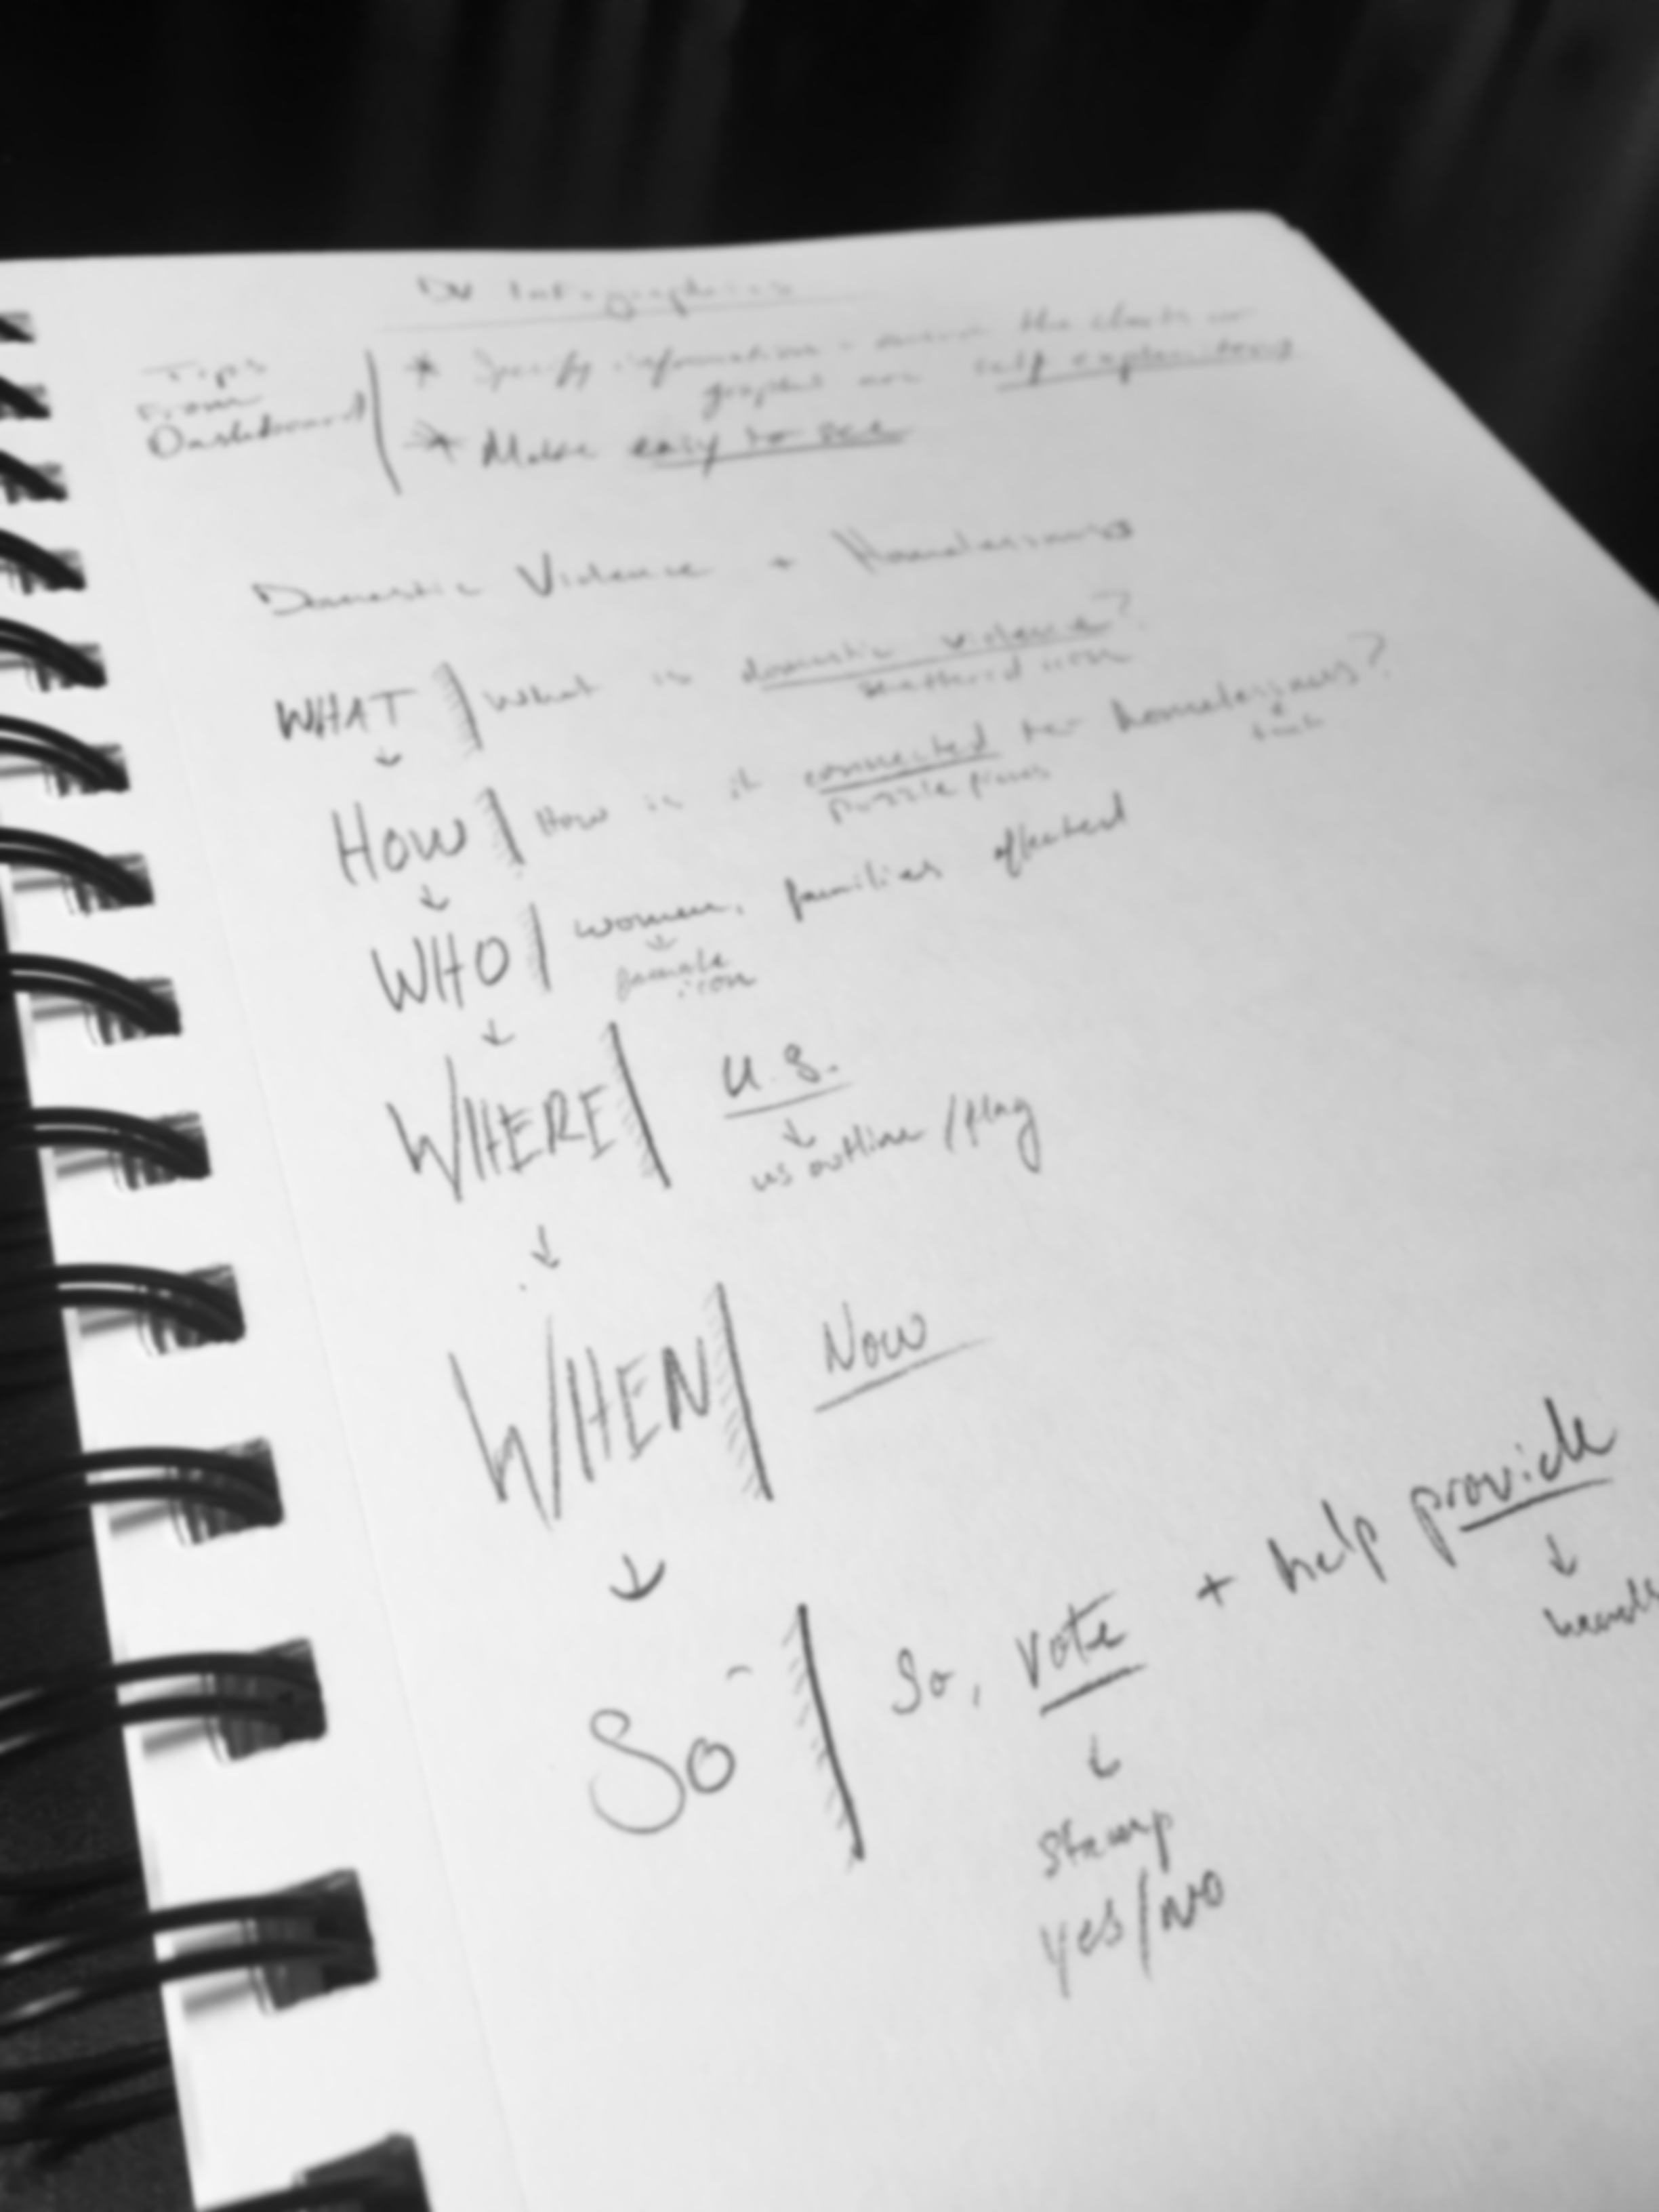 DV Infographics
Tips
From
Dashboard
* Specify information - the charts or
graphs are self explanitory
* Make easy to see
Domestic Violence + Homelessness
WHAT | What is domestic violence?
icon
↓
HOW | How is it connected to homelessness?
puzzle
↓
WHO | women, families affected
↓
female
icon
↓
WHERE | U.S.
↓
us outline / flag
↓
WHEN | Now
↓
So | So, vote + help provide
↓
↓
stamp
yes/no